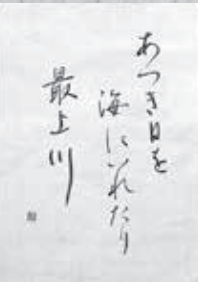 あつき日を
海にいれたり
最上川